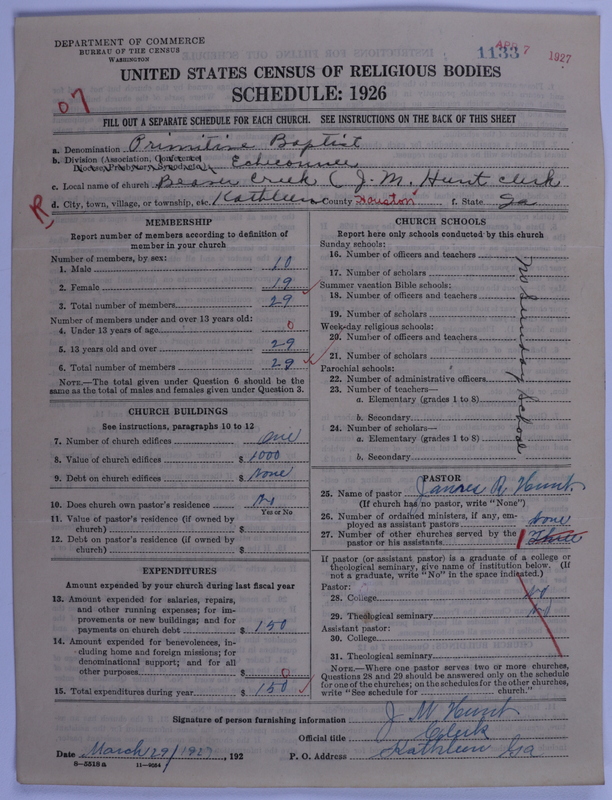 DEPARTMENT OF COMMERCE
BUREAU OF THE CENSUS
WASHINGTON
1133
APR 7 1927
UNITED STATES CENSUS OF RELIGIOUS BODIES
SCHEDULE: 1926
07
FILL OUT A SEPARATE SCHEDULE FOR EACH CHURCH. SEE INSTRUCTIONS ON THE BACK OF THIS SHEET
a. Denomination Primitive Baptist
b. Division (Association, Conference, Diocese, Presbytery, Synod, etc.) Echeconnee
c. Local name of church Beaver Creek (J. M. Hunt clerk
R
d. City, town, village, or township, etc. Kathleen County Houston f. State, Ga
MEMBERSHIP
Report number of members according to definition of
member in your church
Number of members, by sex:
1. Male 10
2. Female 19
3. Total number of members 29
Number of members under and over 13 years old:
4. Under 13 years of age 0
5. 13 years old and over 29
6. Total number of members 29
NOTE.—The total given under Question 6 should be the
same as the total of males and females given under Question 3.
CHURCH BUILDINGS
See instructions, paragraphs 10 to 12
7. Number of church edifices one
8. Value of church edifices $ 1000
9. Debt on church edifices $ None
10. Does church own pastor's residence No
Yes or No
11. Value of pastor's residence (if owned by
church) $
12. Debt on pastor's residence (if owned by
church) $
EXPENDITURES
Amount expended by your church during last fiscal year
13. Amount expended for salaries, repairs,
and other running expenses; for im-
provements or new buildings; and for
payments on church debt $ 150
14. Amount expended for benevolences, in-
cluding home and foreign missions; for
denominational support; and for all
other purposes $ 0
15. Total expenditures during year $ 150
CHURCH SCHOOLS
Report here only schools conducted by this church
Sunday schools:
16. Number of officers and teachers
17. Number of scholars
Summer vacation Bible schools:
18. Number of officers and teachers
19. Number of scholars
Week-day religious schools:
20. Number of officers and teachers
21. Number of scholars
Parochial schools:
22. Number of administrative officers
23. Number of teachers—
a. Elementary (grades 1 to 8)
b. Secondary
24. Number of scholars—
a. Elementary (grades 1 to 8)
b. Secondary
No Sunday School
PASTOR
25. Name of pastor James R Hunt
(If church has no pastor, write "None")
26. Number of ordained ministers, if any, em-
ployed as assistant pastors none
27. Number of other churches served by the
pastor or his assistants Three
If pastor (or assistant pastor) is a graduate of a college or
theological seminary, give name of institution below. (If
not a graduate, write "No" in the space indicated.)
Pastor:
28. College No
29. Theological seminary No
Assistant pastor:
30. College
31. Theological seminary
NOTE.—Where one pastor serves two or more churches,
Questions 28 and 29 should be answered only on the schedule
for one of the churches; on the schedules for the other churches,
write "See schedule for church."
Signature of person furnishing information J M Hunt
Official title Clerk
Date March 29/1927, 192 P. O. Address Kathleen Ga
8—5518 a 11—9084